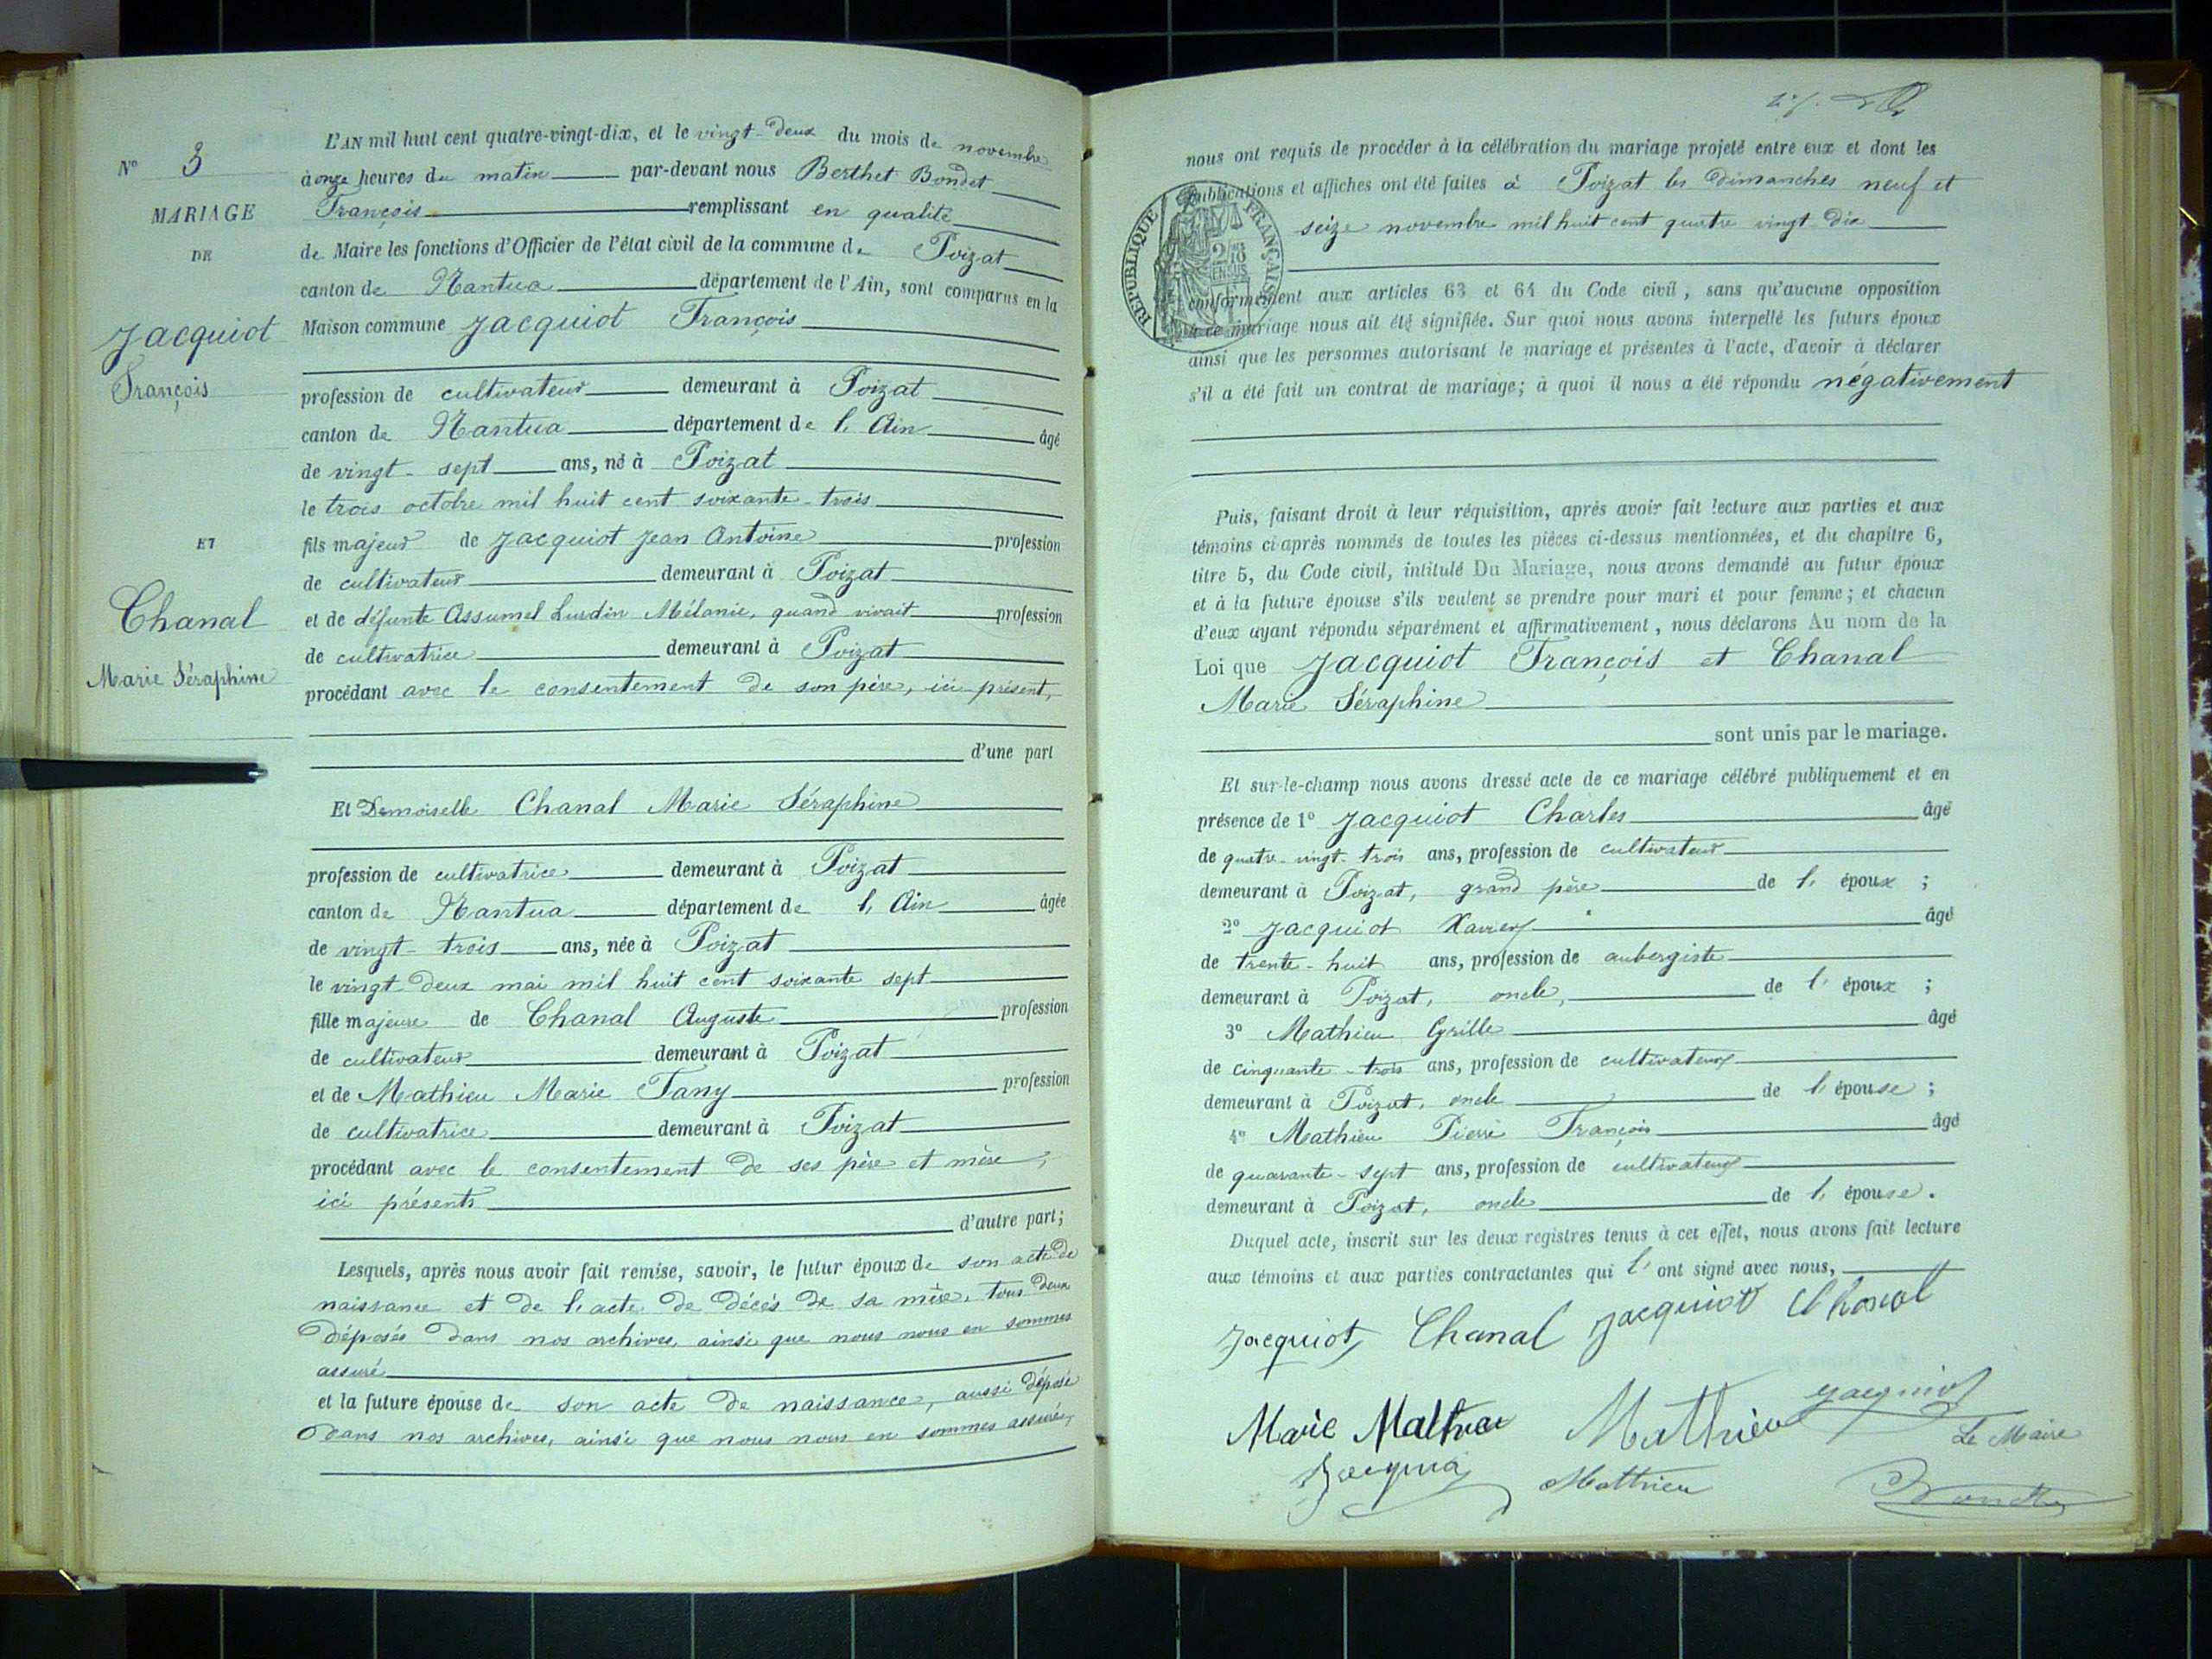 N° 3
MARIAGE
DE
Jacquiot
François
ET
Chanal
Marie Séraphine
L'AN mil huit cent quatre-vingt-dix, et le vingt-deux du mois de novembre
à onze heures du matin par-devant nous Berthet Bondet
François remplissant en qualité
de Maire les fonctions d'Officier de l'état civil de la commune de Poizat
canton de Nantua département de l'Ain, sont comparus en la
Maison commune Jacquiot François
profession de cultivateur demeurant à Poizat
canton de Nantua département de l'Ain âgé
de vingt-sept ans, né à Poizat
le trois octobre mil huit cent soixante-trois
fils majeur de Jacquiot Jean Antoine profession
de cultivateur demeurant à Poizat
et de défunte Assumel Lurdin Mélanie, quand vivait profession
de cultivatrice demeurant à Poizat
procédant avec le consentement de son père, ici présent,
d'une part
Et Demoiselle Chanal Marie Séraphine
profession de cultivatrice demeurant à Poizat
canton de Nantua département de l'Ain âgée
de vingt-trois ans, née à Poizat
le vingt-deux mai mil huit cent soixante sept
fille majeure de Chanal Auguste profession
de cultivateur demeurant à Poizat
et de Mathieu Marie Fany profession
de cultivatrice demeurant à Poizat
procédant avec le consentement de ses père et mère,
ici présents
d'autre part;
Lesquels, après nous avoir fait remise, savoir, le futur époux de son acte de
naissance et de l'acte de décès de sa mère, tous deux
déposés dans nos archives, ainsi que nous nous en sommes
assuré
et la future épouse de son acte de naissance, aussi déposé
dans nos archives, ainsi que nous nous en sommes assuré,
nous ont requis de procéder à la célébration du mariage projeté entre eux et dont les
publications et affiches ont été faites à Poizat les dimanches neuf et
seize novembre mil huit cent quatre vingt dix
RÉPUBLIQUE FRANÇAISE
conformément aux articles 63 et 64 du Code civil, sans qu'aucune opposition
à ce mariage nous ait été signifiée. Sur quoi nous avons interpellé les futurs époux
ainsi que les personnes autorisant le mariage et présentes à l'acte, d'avoir à déclarer
s'il a été fait un contrat de mariage; à quoi il nous a été répondu négativement
Puis, faisant droit à leur réquisition, après avoir fait lecture aux parties et aux
témoins ci-après nommés de toutes les pièces ci-dessus mentionnées, et du chapitre 6,
titre 5, du Code civil, intitulé Du Mariage, nous avons demandé au futur époux
et à la future épouse s'ils veulent se prendre pour mari et pour femme; et chacun
d'eux ayant répondu séparément et affirmativement, nous déclarons Au nom de la
Loi que Jacquiot François et Chanal
Marie Séraphine
sont unis par le mariage.
Et sur-le-champ nous avons dressé acte de ce mariage célébré publiquement et en
présence de 1° Jacquiot Charles âgé
de quatre-vingt-trois ans, profession de cultivateur
demeurant à Poizat, grand père de l'époux ;
2° Jacquiot Xavier âgé
de trente-huit ans, profession de aubergiste
demeurant à Poizat, oncle, de l'époux ;
3° Mathieu Cyrille âgé
de cinquante-trois ans, profession de cultivateur
demeurant à Poizat, oncle de l'épouse ;
4° Mathieu Pierre François âgé
de quarante-sept ans, profession de cultivateur
demeurant à Poizat, oncle de l'épouse.
Duquel acte, inscrit sur les deux registres tenus à cet effet, nous avons fait lecture
aux témoins et aux parties contractantes qui l'ont signé avec nous,
Jacquiot Chanal Jacquiot Chanal
Marie Mathieu Mathieu Jacquiot
Le Maire
Mathieu